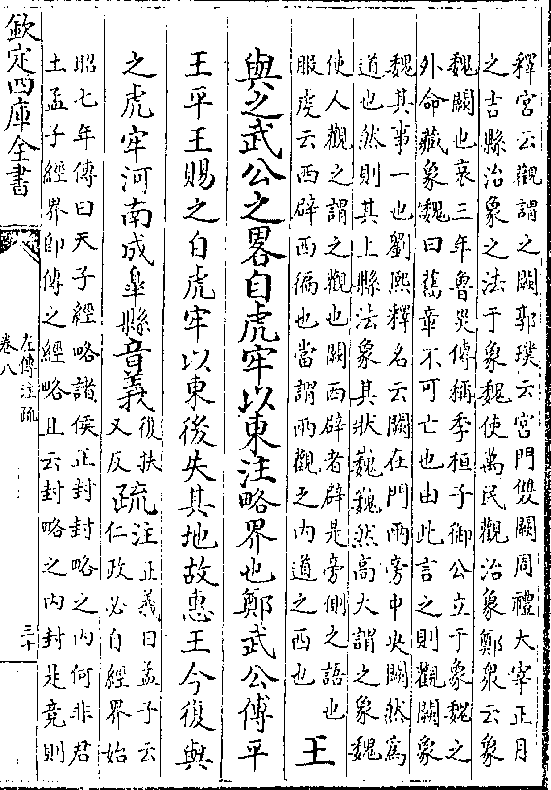 釋宮云觀謂之闕郭璞云宮門雙闕周禮大宰正月
之吉縣治象之法于象魏使萬民觀治象鄭衆云象
魏闕也哀三年魯災傳稱季桓子御公立于象魏之
外命藏象魏曰舊章不可亡也由此言之則觀闕象
魏其事一也劉熙釋名云闕在門兩旁中央闕然為
道也然則其上縣法象其狀巍巍然高大謂之象魏
使人觀之謂之觀也闕西辟者辟是旁側之語也
服虔云西辟西偏也當謂兩觀之内道之西也
王
與之武公之畧自虎牢以東注略界也鄭武公傅平
王平王賜之自虎牢以東後失其地故惠王今復與
之虎牢河南成臯縣音義
復扶
又反
疏
注正義曰孟子云
仁政必自經界始
昭七年傳曰天子經略諸侯正封封略之内何非君
土孟子經界即傳之經略且云封略之内封是竟則
欽定四庫全書
左傳注疏
卷八
三十